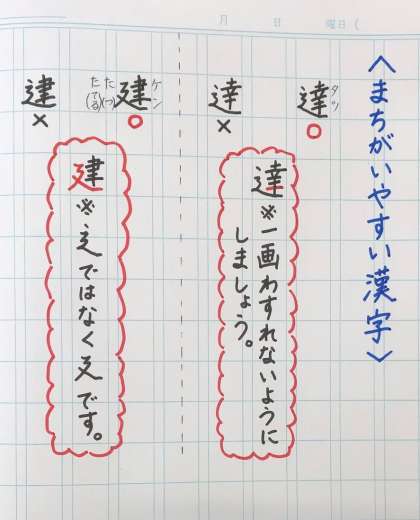 月　日　曜日（
〈まちがいやすい漢字〉
タツ
達
○
達
×
達※一画わすれないように
しましょう。
ケン
建
たつ
たてる
○
×
建※辶ではなく廴です。